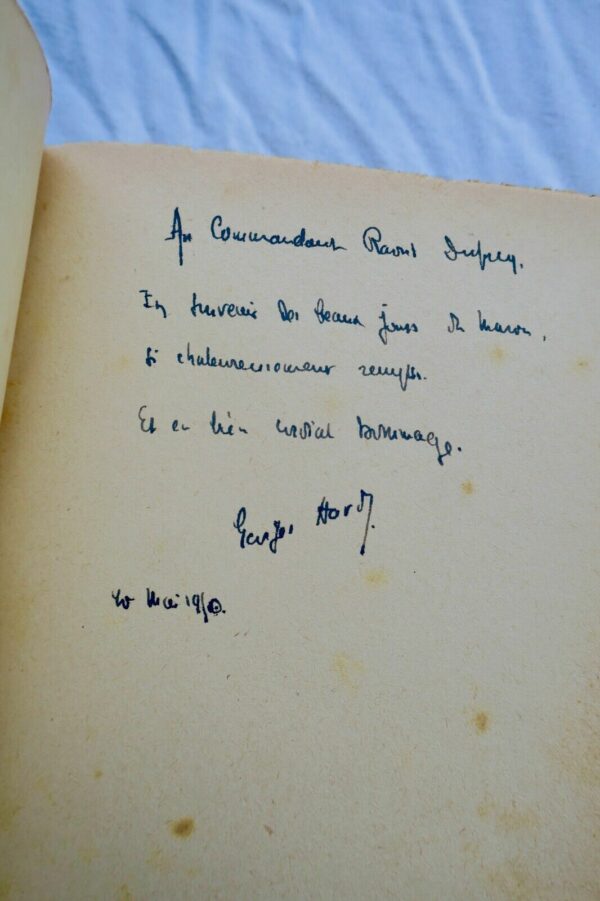 Au Commandant Raoul Dupuy.
En souvenir des beaux jours du Maroc,
si chaleureusement remplis.
Et en bien cordial hommage.
Georges Hardy
Mai 1950.